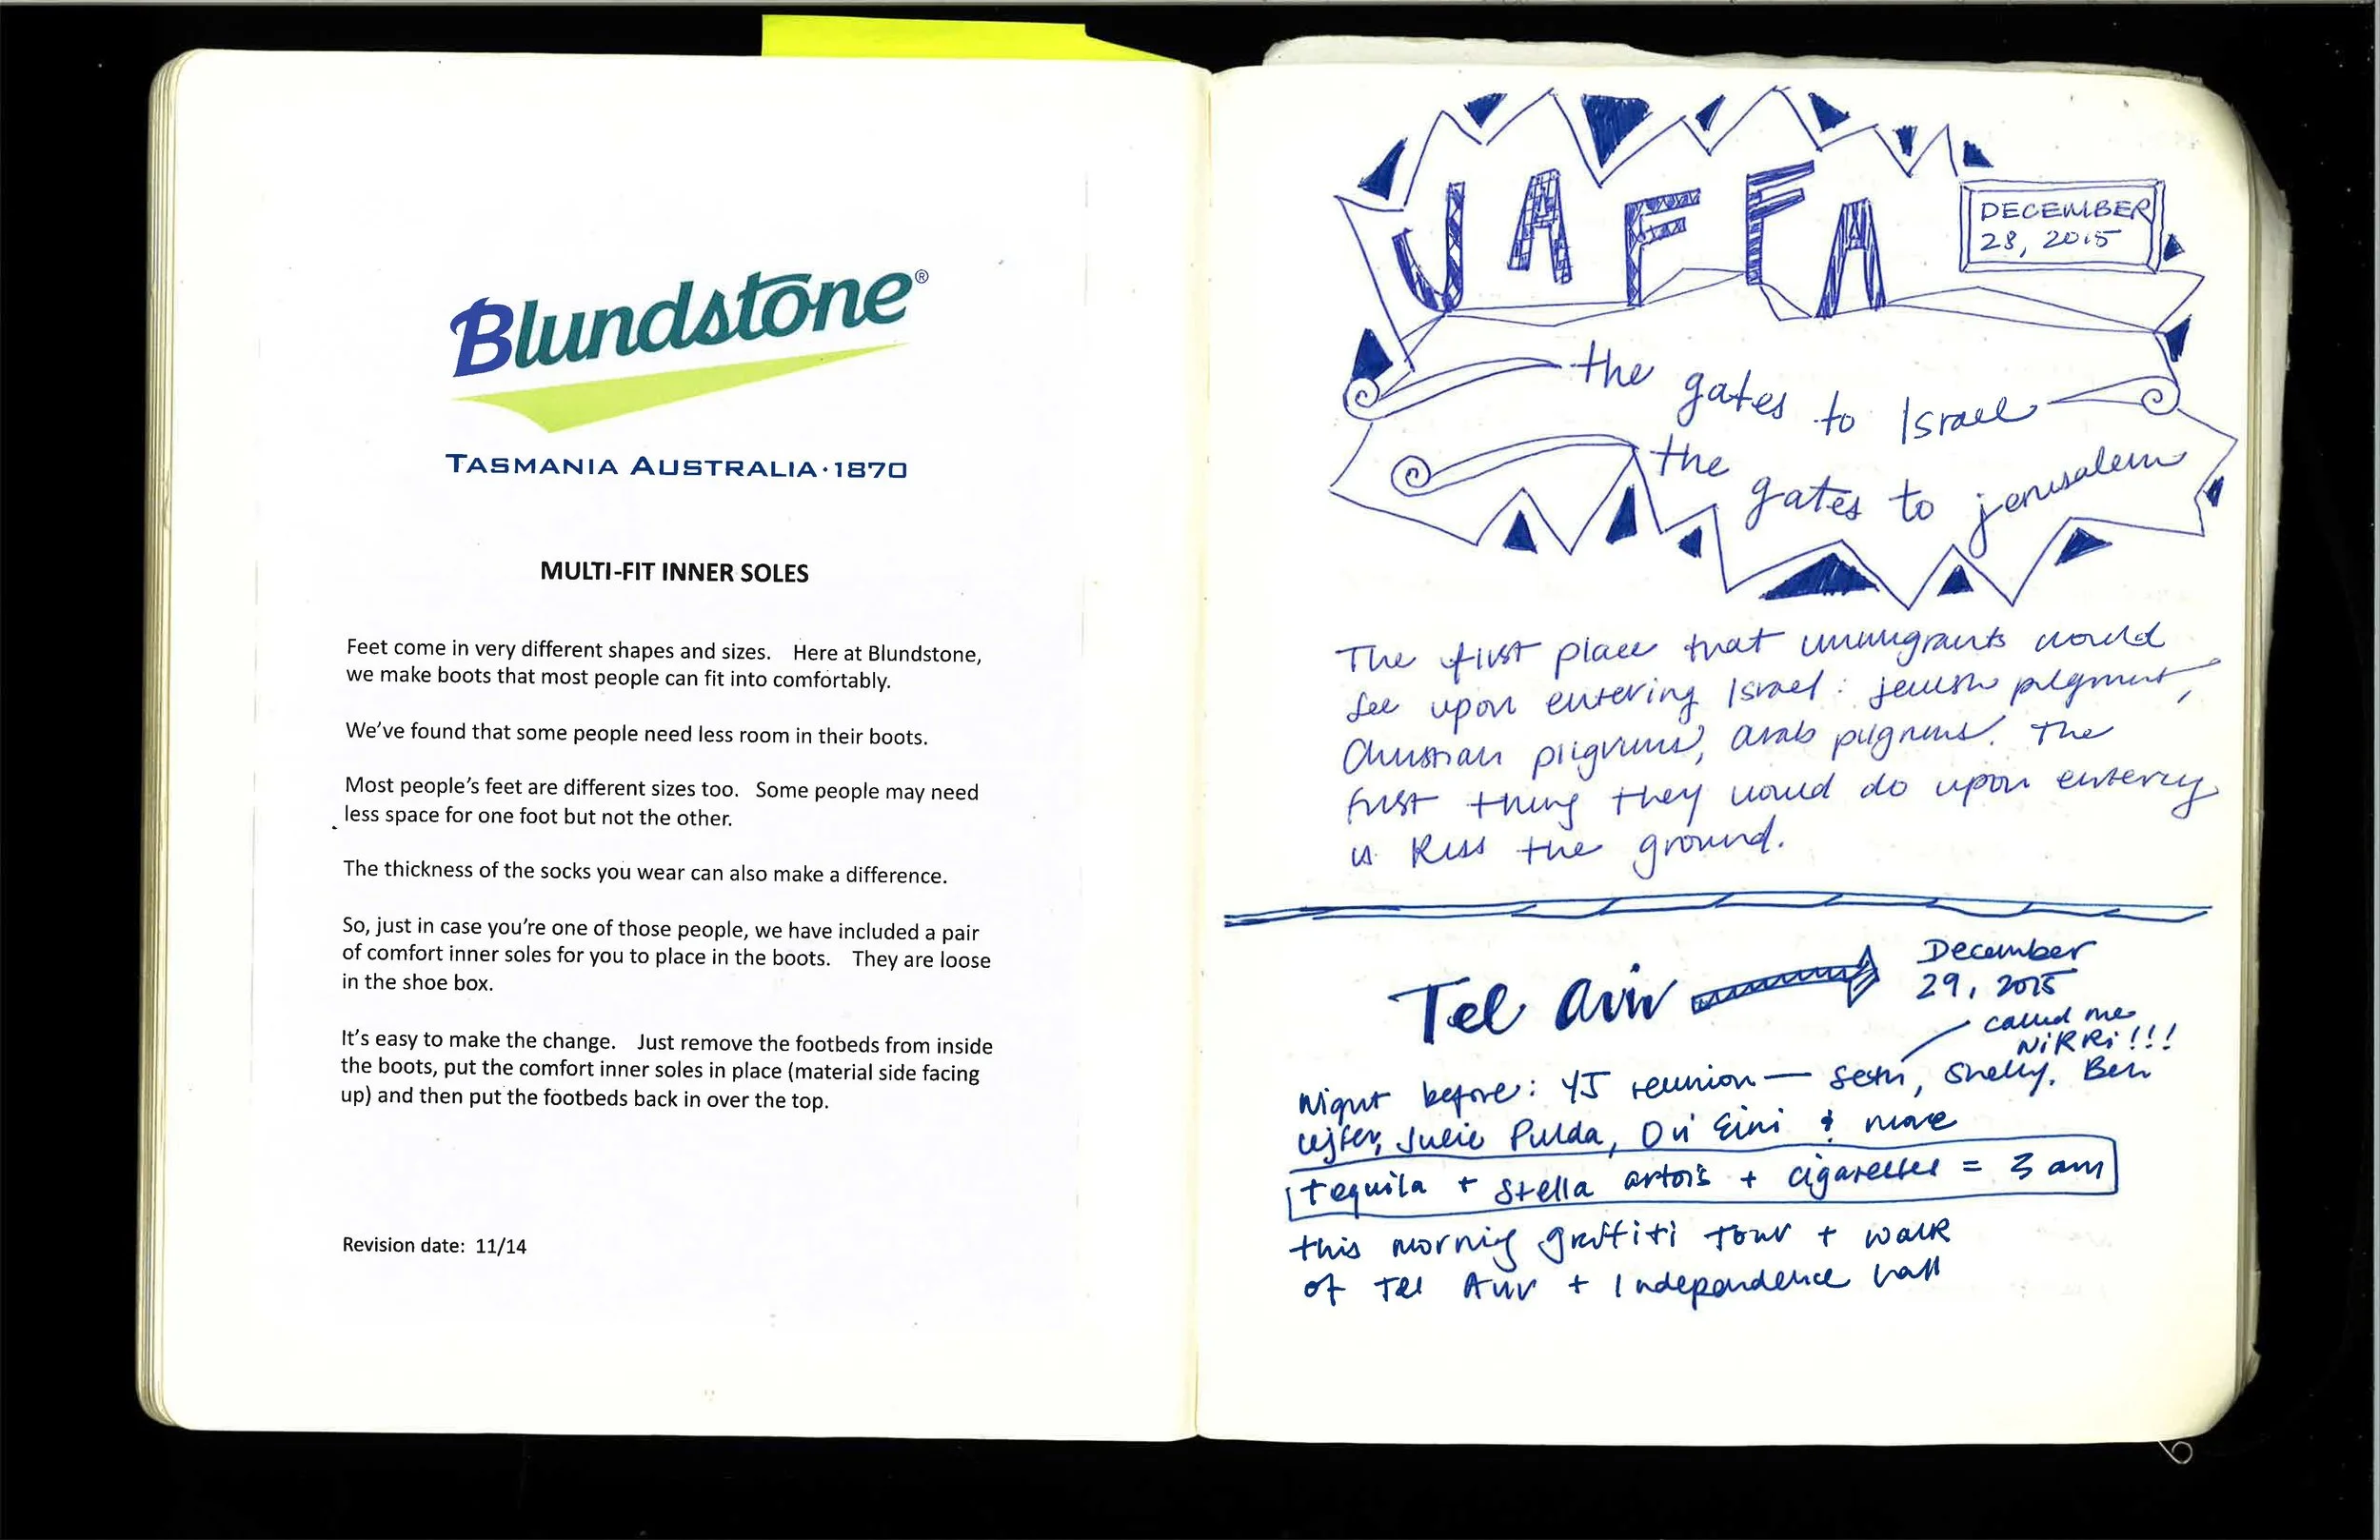 Blundstone®
TASMANIA AUSTRALIA·1870
MULTI-FIT INNER SOLES
Feet come in very different shapes and sizes. Here at Blundstone,
we make boots that most people can fit into comfortably.
We've found that some people need less room in their boots.
Most people's feet are different sizes too. Some people may need
less space for one foot but not the other.
The thickness of the socks you wear can also make a difference.
So, just in case you're one of those people, we have included a pair
of comfort inner soles for you to place in the boots. They are loose
in the shoe box.
It's easy to make the change. Just remove the footbeds from inside
the boots, put the comfort inner soles in place (material side facing
up) and then put the footbeds back in over the top.
Revision date: 11/14
JAFFA
DECEMBER
28, 2015
the gates to Israel
the gates to jerusalem
The first place that immigrants would
see upon entering Israel: jewish
Christian pilgrims, arab pilgrims. The
first thing they would do upon entering
is kiss the ground.
Tel Aviv
December
29, 2015
called me
NiKKi!!!
Night before: YJ reunion — Seth, Shelly, Ben
Julie Pulda, Ori Eini & more
tequila + Stella artois + cigarettes = 3 am
this morning graffiti tour + walk
of Tel Aviv + Independence hall